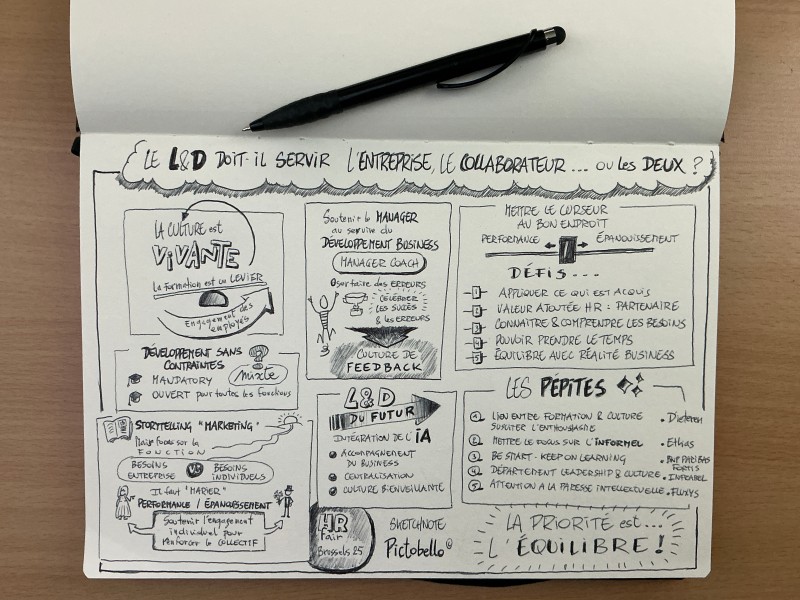 LE L&D DOIT-IL SERVIR L'ENTREPRISE, LE COLLABORATEUR ... OU LES DEUX ?
LA CULTURE est
VIVANTE
La formation est un LEVIER
Engagement des
employés
DÉVELOPPEMENT SANS
CONTRAINTES
MANDATORY
mixte
OUVERT pour toutes les fonctions
STORYTELLING "MARKETING"
Mais focus sur la
FONCTION
BESOINS
ENTREPRISE
VS
BESOINS
INDIVIDUELS
Il faut "MARIER"
PERFORMANCE / ÉPANOUISSEMENT
Soutenir l'engagement
individuel pour
renforcer le COLLECTIF
Soutenir le MANAGER
au service du
DÉVELOPPEMENT BUSINESS
MANAGER COACH
Oser faire des ERREURS
CÉLÉBRER
LES SUCCÈS
& les ERREURS
CULTURE DE
FEEDBACK
L&D
DU FUTUR
INTÉGRATION DE L'IA
ACCOMPAGNEMENT
DU BUSINESS
CENTRALISATION
CULTURE BIENVEILLANTE
HR
Fair
Brussels 25
SKETCHNOTE
Pictobello
METTRE LE CURSEUR
AU BON ENDROIT
PERFORMANCE
ÉPANOUISSEMENT
DÉFIS...
1 APPLIQUER CE QUI EST ACQUIS
2 VALEUR AJOUTÉE HR : PARTENAIRE
3 CONNAITRE & COMPRENDRE LES BESOINS
4 POUVOIR PRENDRE LE TEMPS
5 ÉQUILIBRE AVEC RÉALITÉ BUSINESS
LES PÉPITES
1 LIEN ENTRE FORMATION & CULTURE
SUSCITER L'ENTHOUSIASME
• Dieteren
2 METTRE LE FOCUS SUR L'INFORMEL • Ethias
3 BE START - KEEP ON LEARNING • BNP PARIBAS
FORTIS
4 DÉPARTEMENT LEADERSHIP & CULTURE • INFRABEL
5 ATTENTION A LA PARESSE INTELLECTUELLE • FLUXYS
LA PRIORITÉ est...
L'ÉQUILIBRE !